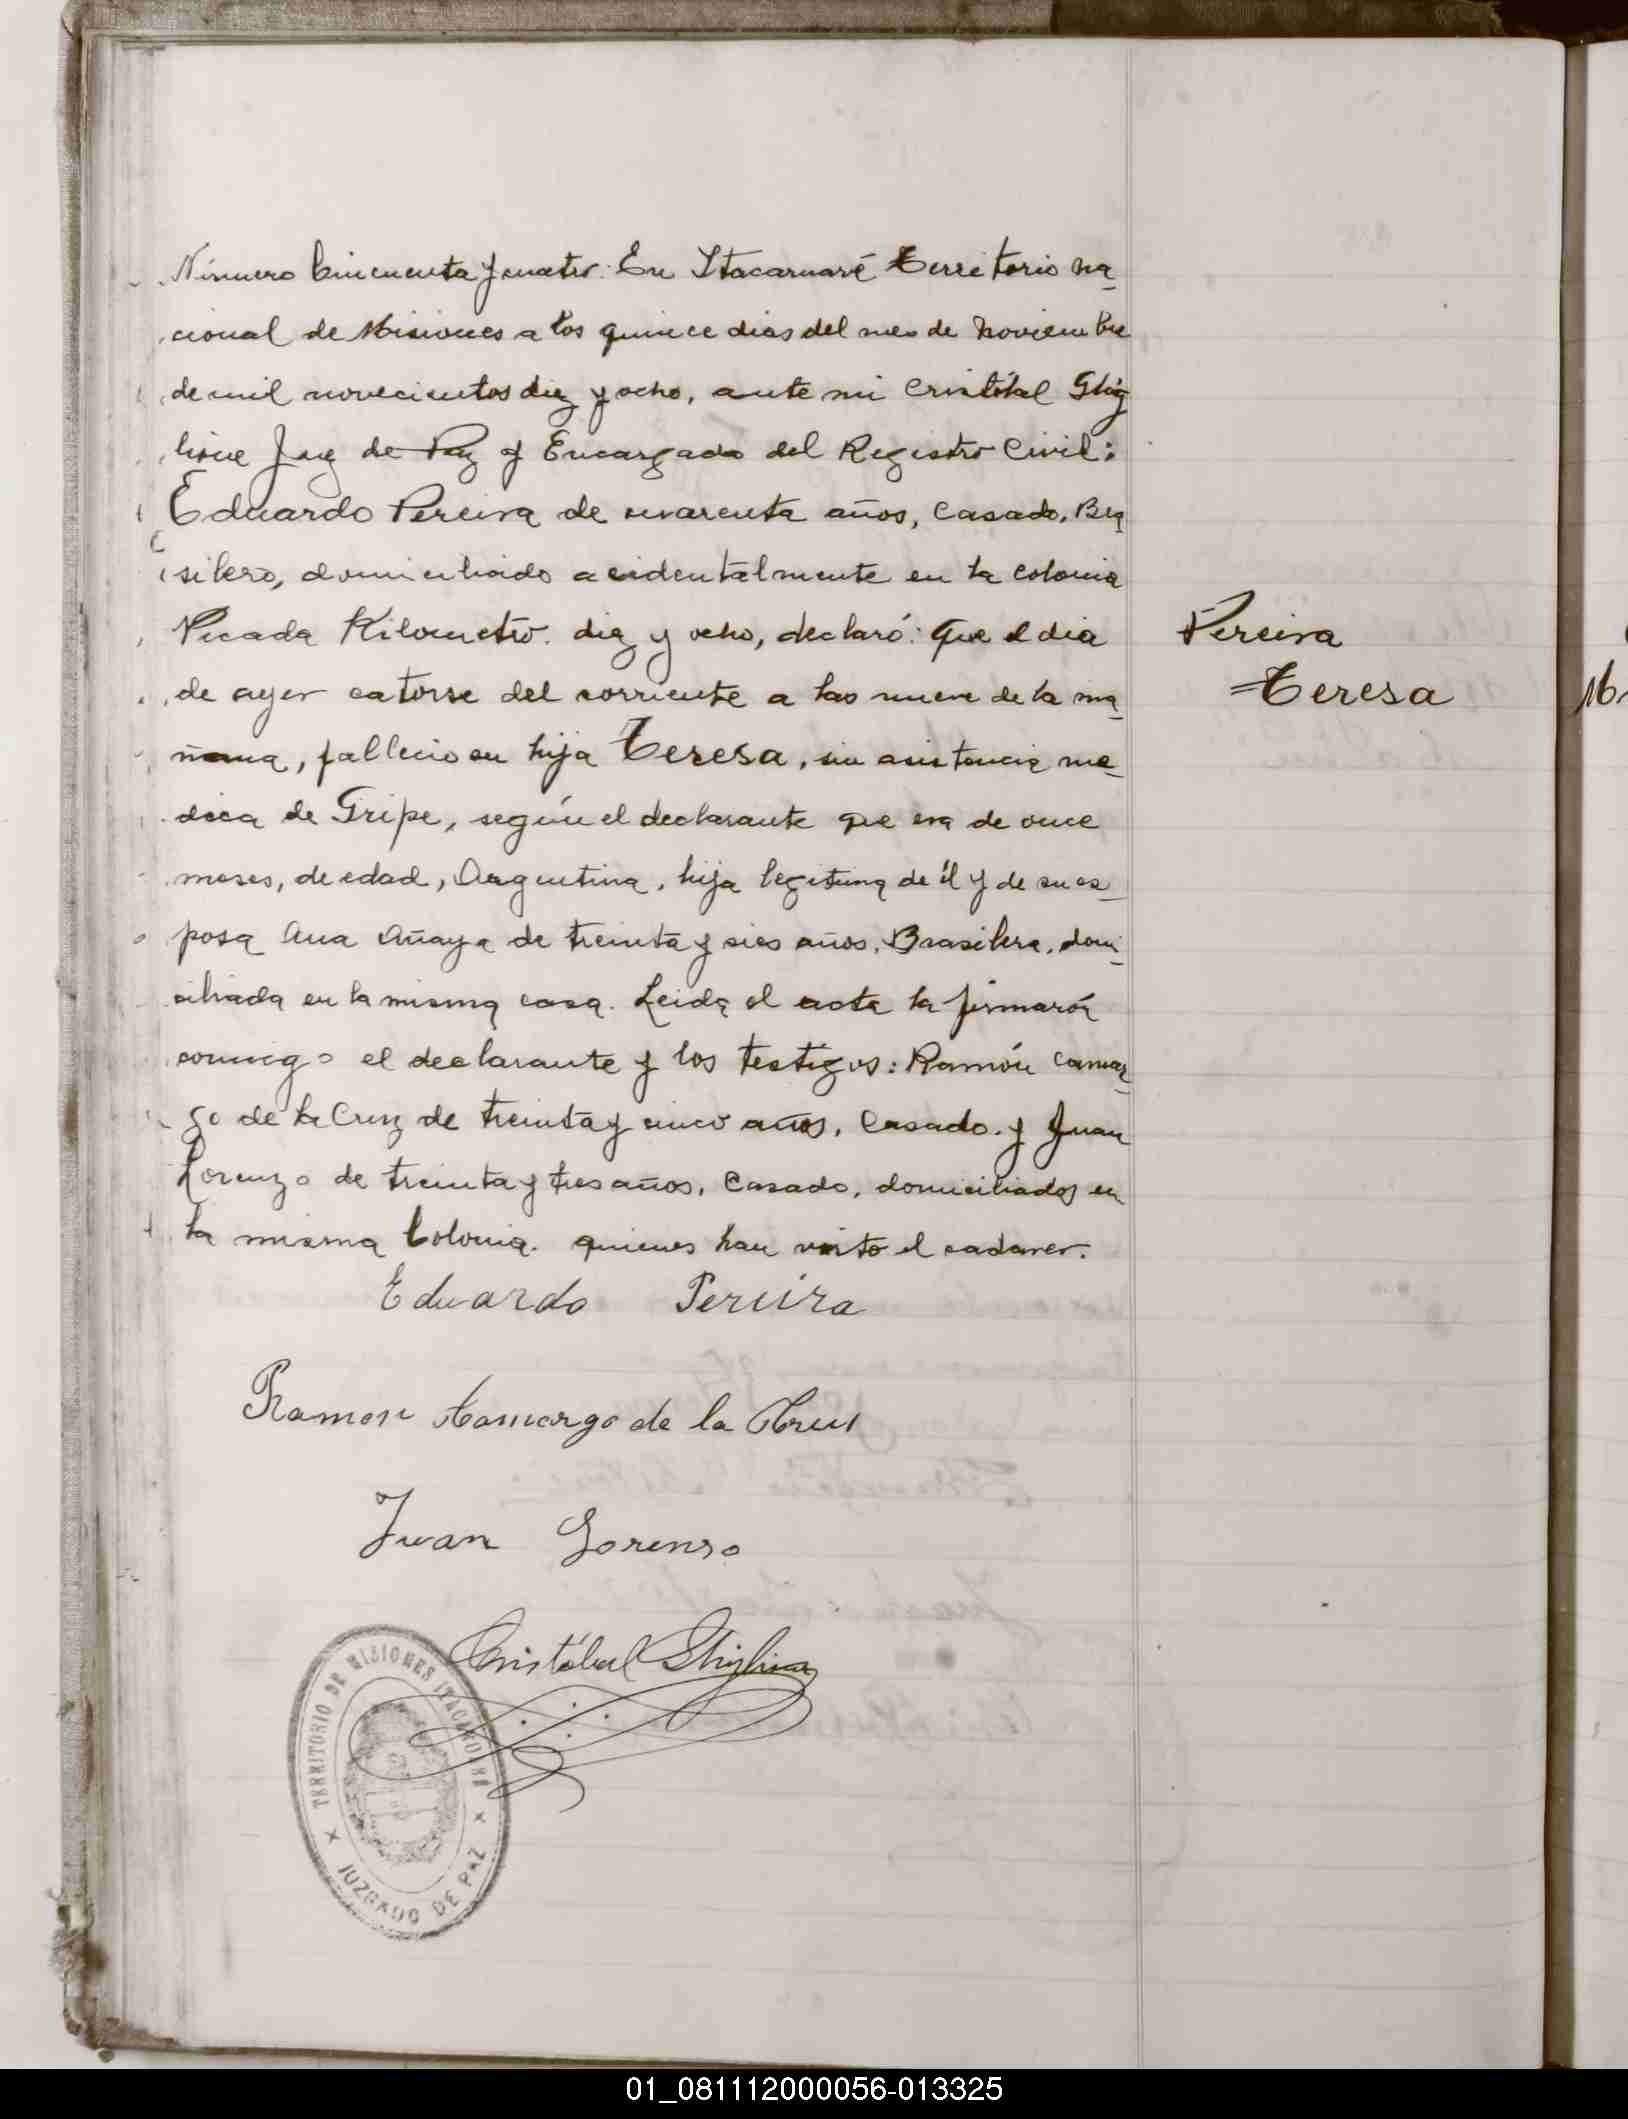 Número Cincuenta y cuatro: En Itacaruaré Territorio na-
cional de Misiones a los quince dias del mes de Noviembre
de mil novecientos diez y ocho, ante mi Cristóbal Ghig
lione Juez de Paz y Encargado del Registro Civil:
Eduardo Pereira de cuarenta años, Casado, Bra
silero, domiciliado acidentalmente en la colonia
Picada Kilometro. diez y ocho, declaró: Que el dia
de ayer catorse del corriente a las nueve de la ma-
ñana, fallecio su hija Teresa, sin asistencia me-
dica de Gripe, según el declarante que era de once
meses, de edad, Argentina, hija legitima de él y de su es-
posa Ana Añaya de treinta y sies años, Brasilera, domi-
ciliada en la misma casa. Leida el acta la firmarón
conmigo el declarante y los testigos: Ramón Camar-
go de la Cruz de treinta y cinco años, Casado. y Juan
Lorenzo de treinta y tres años, Casado, domiciliados en
la misma Colonia. quienes han visto el cadaver.
Pereira
Teresa
Eduardo Pereira
Ramon Camargo de la Crus
Juan Lorenso
Cristóbal Ghiglione
TERRITORIO DE MISIONES ITACARUARÉ
JUZGADO DE PAZ
01_081112000056-013325